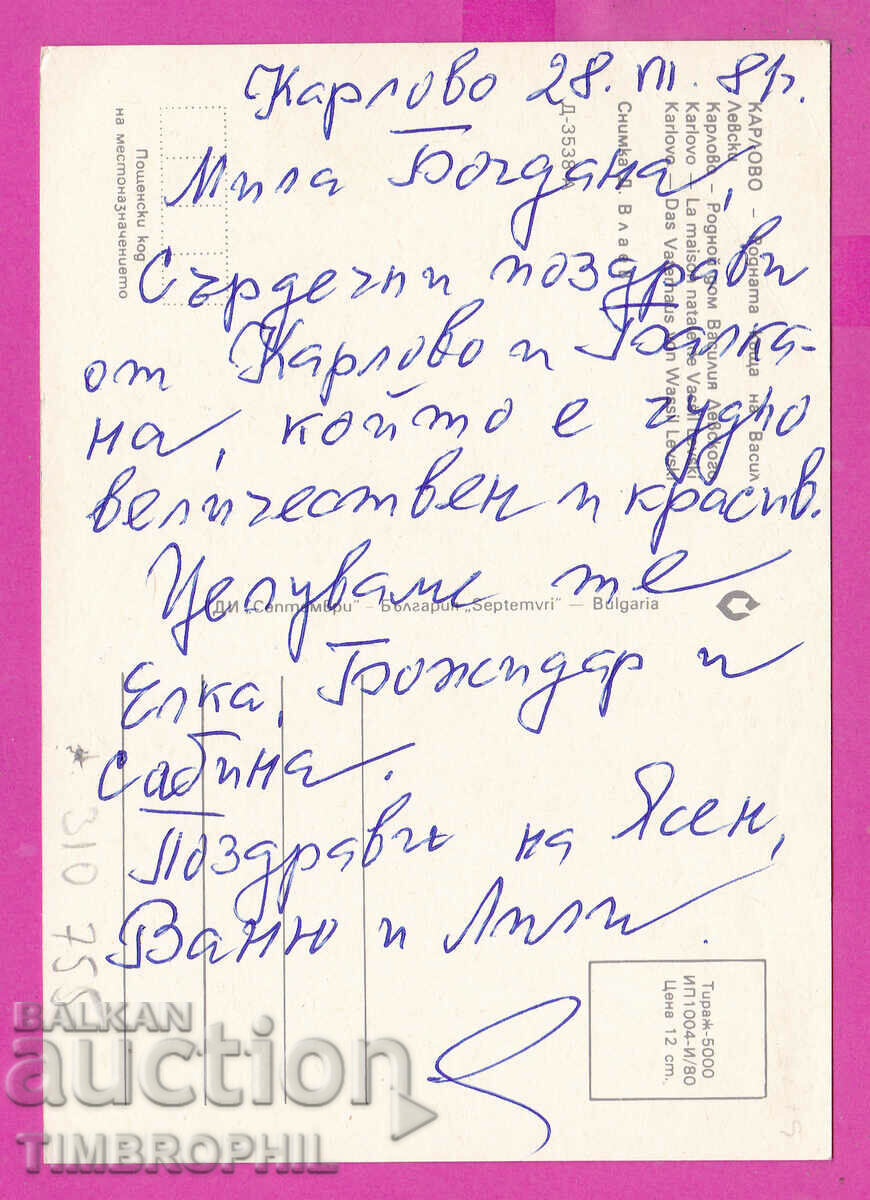 Карлово 28.III.81г.
Мила Богдана,
Сърдечни поздрави
от Карлово и Балка-
на, който е чудно
величествен и красив.
Целуваме те
Елка, Божидар и
Сабина.
Поздрави на Ясен,
Ваню и Лили.
КАРЛОВО – Родната къща на Васил
Левски
Карлово – Родной дом Василия Левского
Karlovo – La maison natale de Vassil Levski
Karlovo – Das Vaterhaus von Wassil Levski
Снимка Д. Влаев
Д-3538-А
Пощенски код
на местоназначението
ДИ „Септември" – България „Septemvri" — Bulgaria
Тираж-5000
ИП1004-И/80
Цена 12 ст.
310 755
BALKAN
auction
TIMBROPHIL